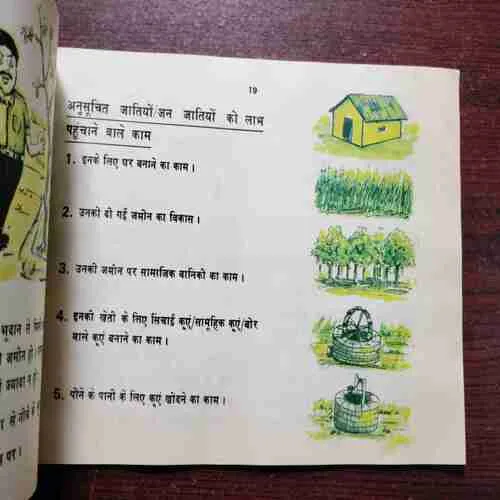 भूदान से
19
अनुसूचित जातियों/जन जातियों को लाभ
पहुंचाने वाले काम
1. इनके लिए घर बनाने का काम।
2. उनकी दी गई जमीन का विकास।
3. उनकी जमीन पर सामाजिक वानिकी का काम।
4. इनकी खेती के लिए सिंचाई कूएं/सामूहिक कूएं/बोर
वाले कूएं बनाने का काम।
5. पीने के पानी के लिए कूएं खोदने का काम।